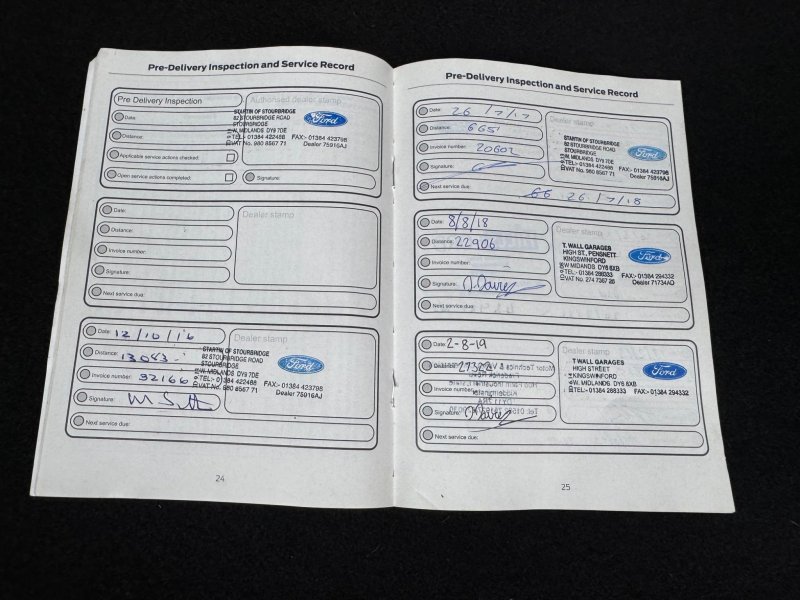 Pre-Delivery Inspection and Service Record
Pre Delivery Inspection
Date:
Distance:
Applicable service actions checked:
Open service actions completed:
Authorised dealer stamp
STARTIN OF STOURBRIDGE
82 STOURBRIDGE ROAD
STOURBRIDGE
W. MIDLANDS DY9 7DE
TEL:- 01384 422488 FAX:- 01384 423798
VAT No. 980 8567 71 Dealer 75916AJ
Ford
Signature:
Date:
Distance:
Invoice number:
Signature:
Next service due:
Dealer stamp
Date: 12/10/16
Distance: 13043
Invoice number: 32166
Signature:
Next service due:
Dealer stamp
STARTIN OF STOURBRIDGE
82 STOURBRIDGE ROAD
STOURBRIDGE
W. MIDLANDS DY9 7DE
TEL:- 01384 422488 FAX:- 01384 423798
VAT No. 980 8567 71 Dealer 75916AJ
Ford
24
Pre-Delivery Inspection and Service Record
Date: 26/7/17
Distance: 6651
Invoice number: 20602
Signature:
Next service due: 26/7/18
Dealer stamp
STARTIN OF STOURBRIDGE
82 STOURBRIDGE ROAD
STOURBRIDGE
W. MIDLANDS DY9 7DE
TEL:- 01384 422488 FAX:- 01384 423798
VAT No. 980 8567 71 Dealer 75916AJ
Ford
Date: 8/8/18
Distance: 22906
Invoice number:
Signature:
Next service due:
Dealer stamp
T. WALL GARAGES
HIGH ST., PENSNETT
KINGSWINFORD
W MIDLANDS DY6 8XB
TEL:- 01384 288333 FAX:- 01384 294332
VAT No. 274 7367 28 Dealer 71734AD
Ford
Date: 2-8-19
Invoice number:
Signature:
Next service due:
Dealer stamp
T WALL GARAGES
HIGH STREET
KINGSWINFORD
W. MIDLANDS DY6 8XB
TEL:- 01384 288333 FAX:- 01384 294332
Ford
25